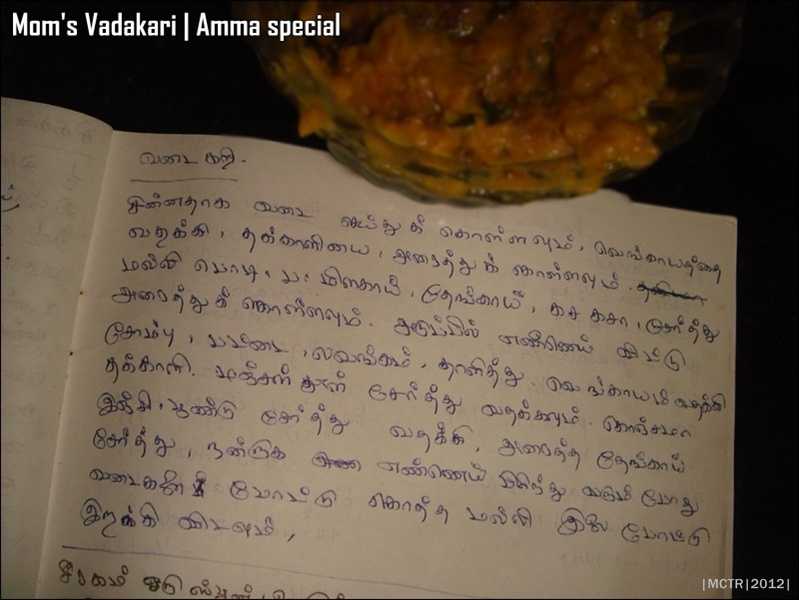 Mom's Vadakari | Amma special
வடை கறி.
சின்னதாக வடை சுட்டு க் கொள்ளவும், வெங்காயத்தை
வதக்கி, தக்காளியை, அரைத்து க் கொள்ளவும்.
மல்லி பொடி, ப. மிளகாய், தேங்காய், கச கசா, சேர்த்து
அரைத்து க் கொள்ளவும். அடுப்பில் எண்ணெய் விட்டு
சோம்பு, பட்டை, லவங்கம், தாளித்து. வெங்காயம் வதக்கி
தக்காளி. மஞ்சள் தூள் சேர்த்து வதக்கவும். கொஞ்சமா
இஞ்சி, பூண்டு சேர்த்து வதக்கி, அரைத்த தேங்காய்
சேர்த்து, நன்றாக எண்ணெய் பிரிந்து வரும் போது
வடைகளை போட்டு கொத்த மல்லி இலை போட்டு
இறக்கி விடவும்,
சீரகம்
|MCTR|2012|